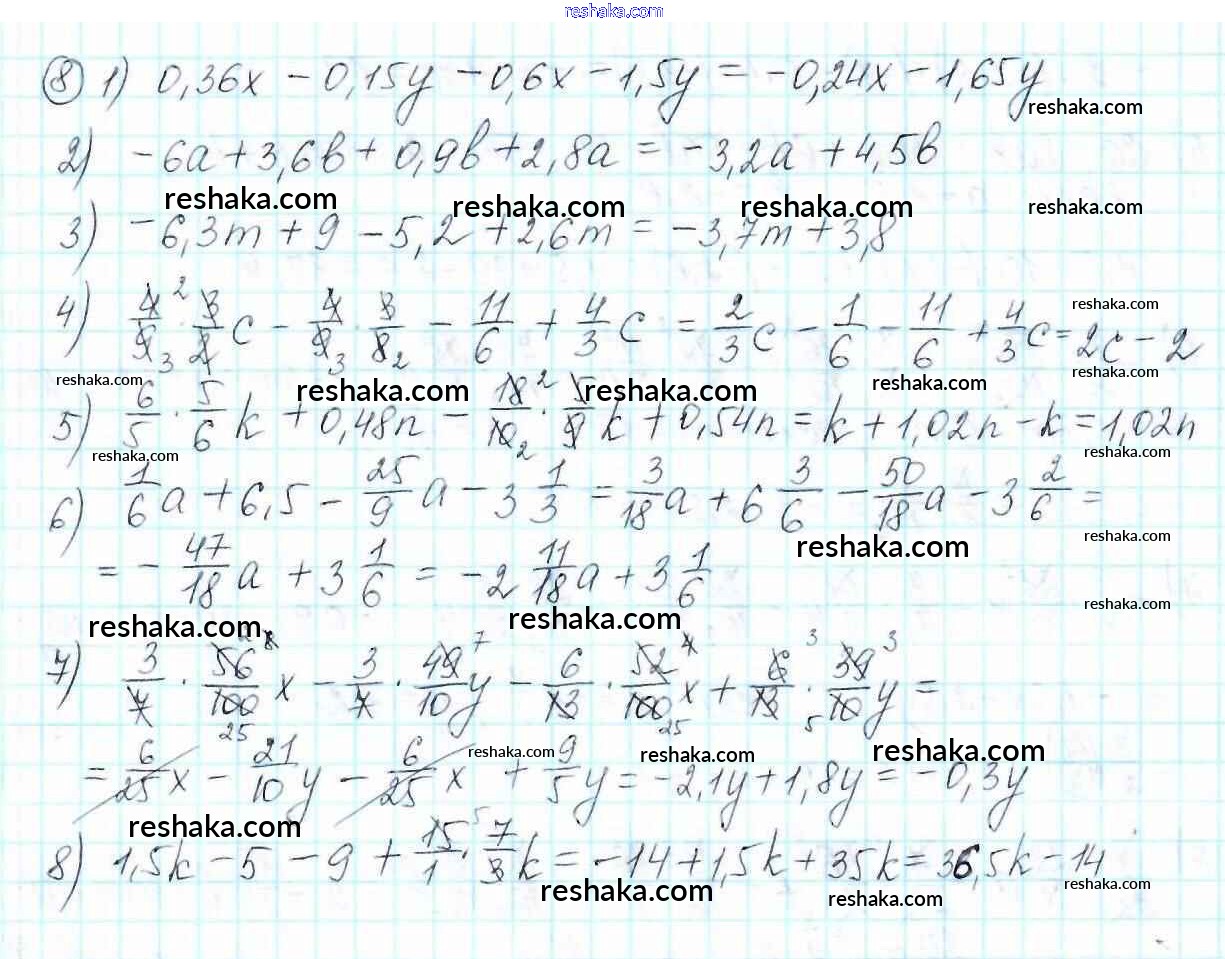 reshaka.com
⑧ 1) 0,36x - 0,15y - 0,6x - 1,5y = -0,24x - 1,65y
reshaka.com
2) -6a + 3,6b + 0,9b + 2,8a = -3,2a + 4,5b
reshaka.com reshaka.com reshaka.com reshaka.com
3) -6,3m + 9 - 5,2 + 2,6m = -3,7m + 3,8
reshaka.com
4) 4/9 3 · 2 3/2 c - 4/9 3 · 3/8 2 - 11/6 + 4/3 c = 2/3 c - 1/6 - 11/6 + 4/3 c = 2c - 2
reshaka.com reshaka.com reshaka.com reshaka.com reshaka.com
5) 6/5 · 5/6 k + 0,48n - 18/10 2 2 · 5/9 k + 0,54n = k + 1,02n - k = 1,02n
reshaka.com reshaka.com
6) 1/6 a + 6,5 - 25/9 a - 3 1/3 = 3/18 a + 6 3/6 - 50/18 a - 3 2/6 =
reshaka.com reshaka.com
= - 47/18 a + 3 1/6 = -2 11/18 a + 3 1/6
reshaka.com reshaka.com reshaka.com
7) 3/7 · 56/100 25 8 x - 3/7 · 49/10 7 y - 6/13 · 52/100 25 4 x + 6/13 3 · 39/10 5 3 y =
reshaka.com reshaka.com reshaka.com
= 6/25 x - 21/10 y - 6/25 x + 9/5 y = -2,1y + 1,8y = -0,3y
reshaka.com
8) 1,5k - 5 - 9 + 15/1 5 · 7/3 k = -14 + 1,5k + 35k = 36,5k - 14
reshaka.com reshaka.com reshaka.com